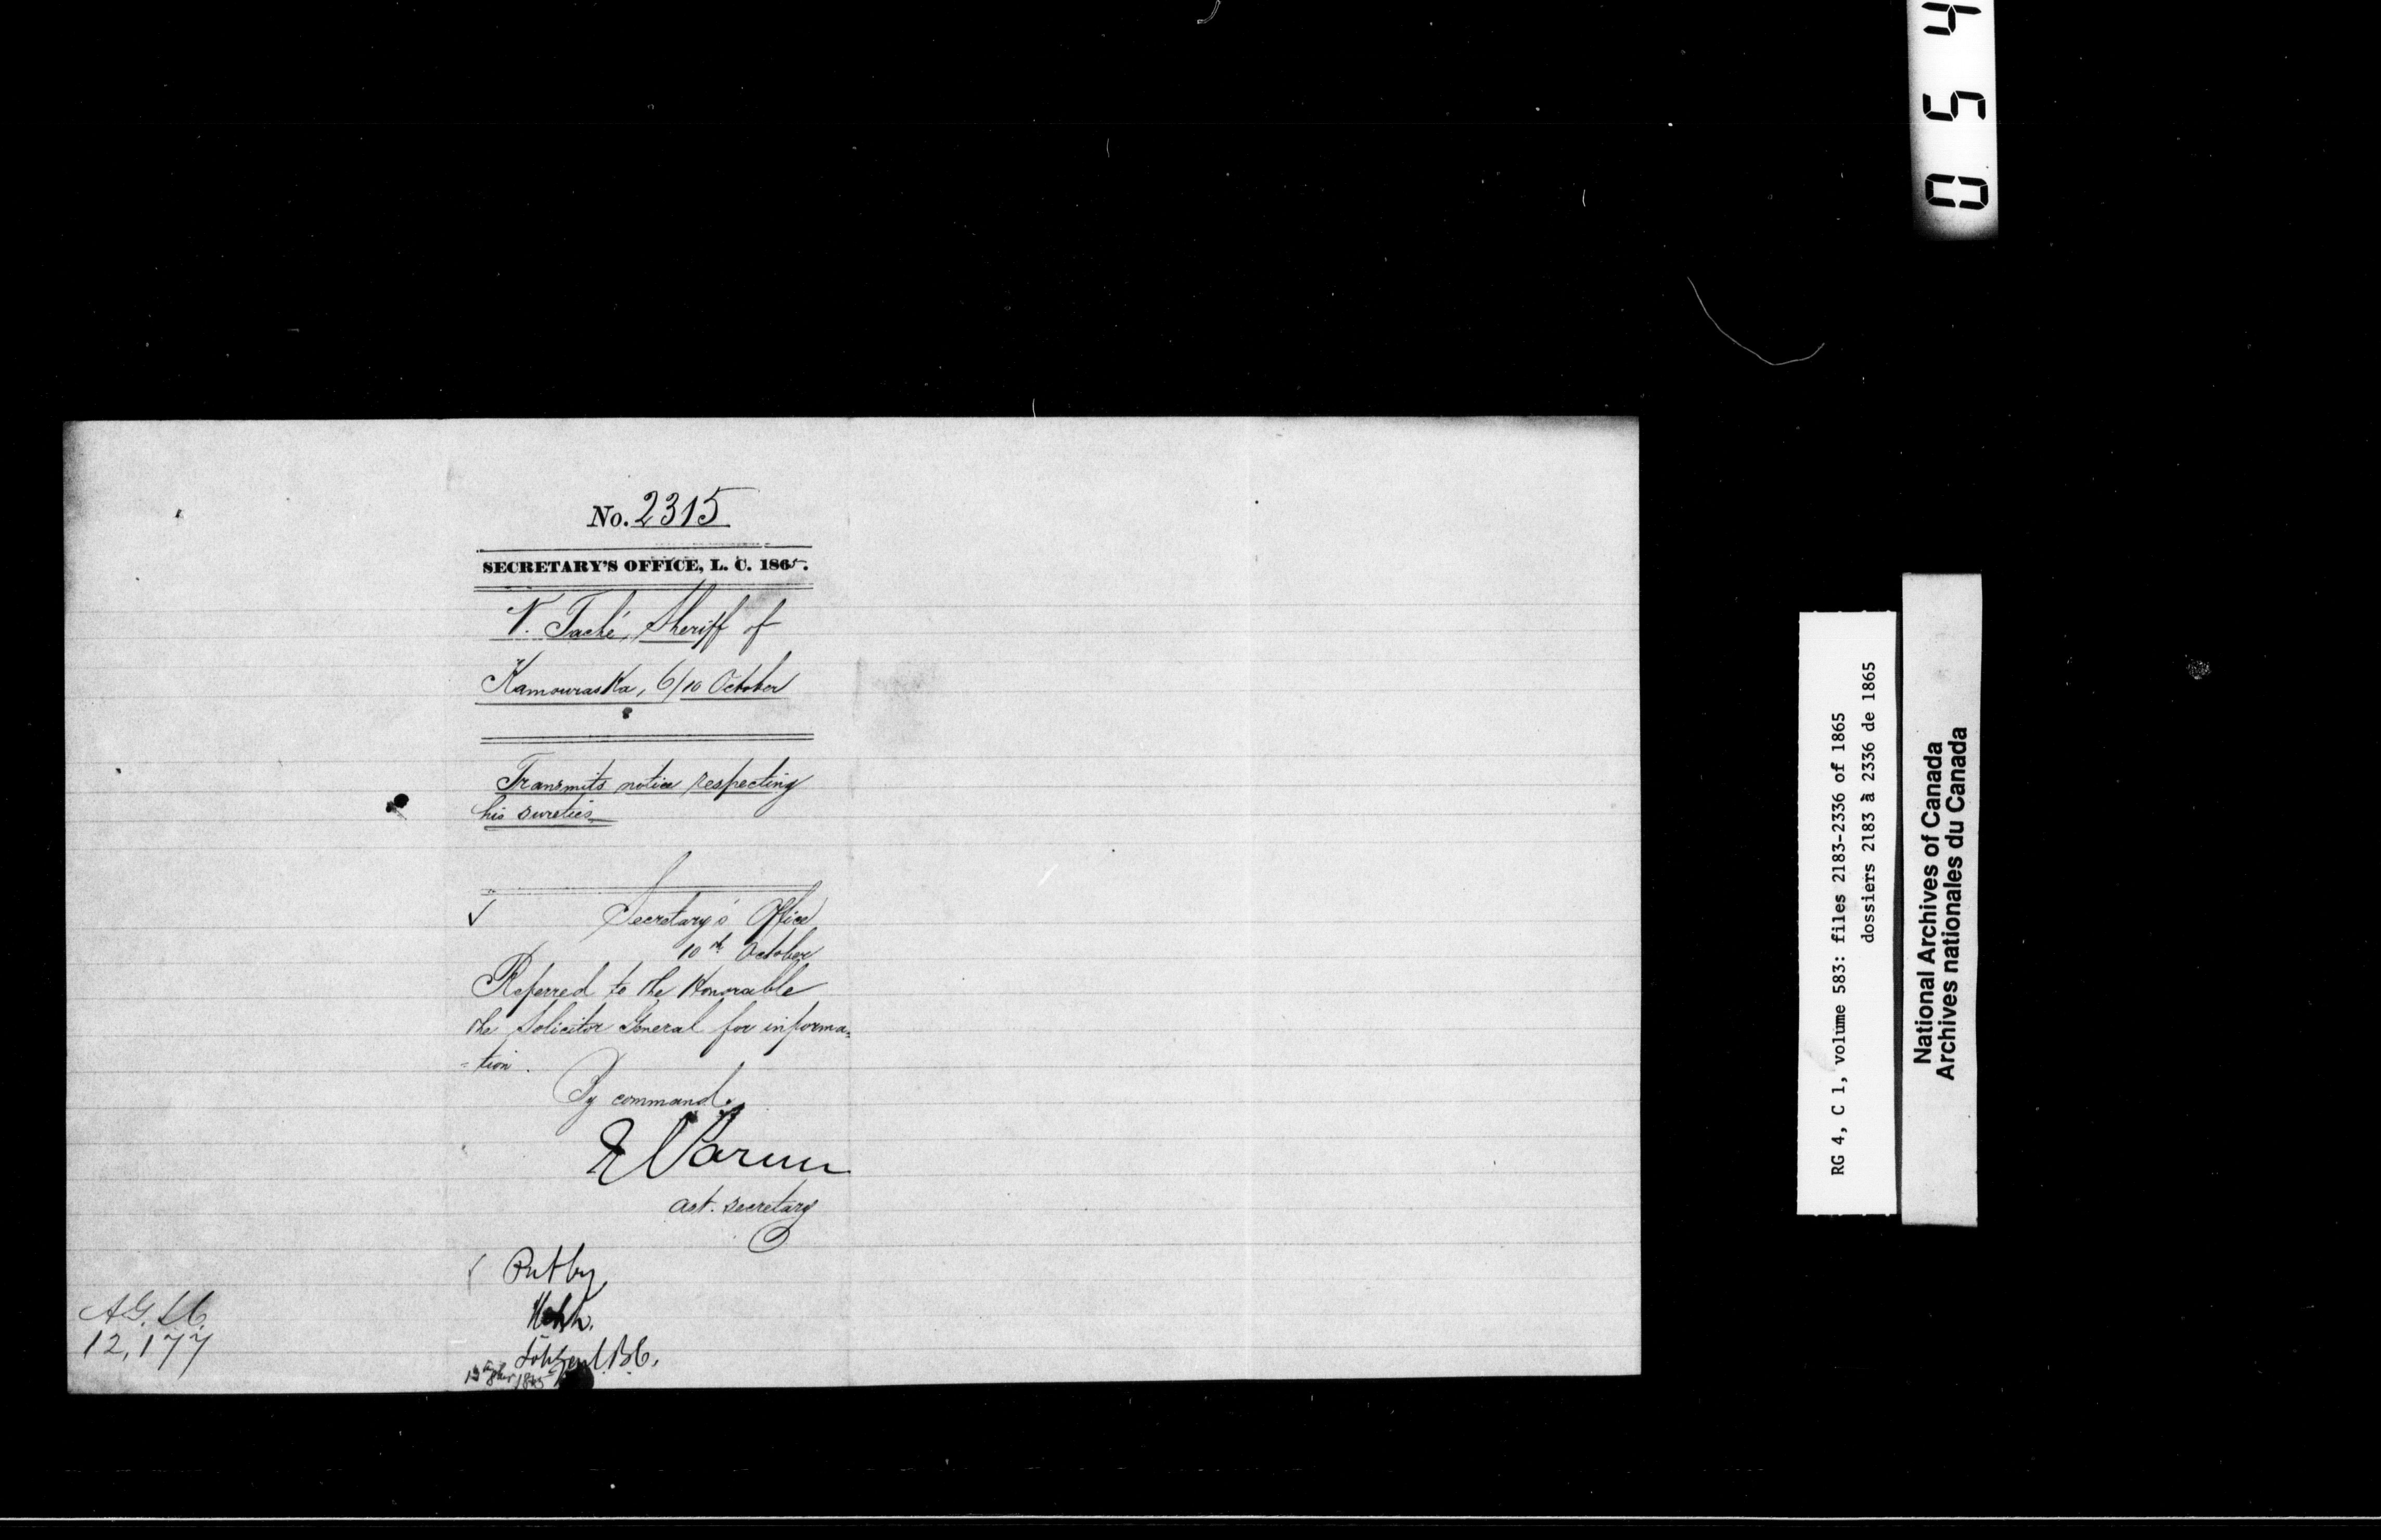 No. 2315
SECRETARY'S OFFICE, L. C. 1865.
V. Taché, Sheriff of
Kamouraska, 6/10 October
Transmits notice respecting
his sureties
Secretary's Office
10th October
Referred to the Honorable
the Solicitor General for informa-
-tion.
By command.
E Parent
Ast. Secretary
Put by,
Solr Genl
1865
A.G. L.C.
12,177
0 5 4
RG 4, C 1, volume 583: files 2183-2336 of 1865
dossiers 2183 à 2336 de 1865
National Archives of Canada
Archives nationales du Canada